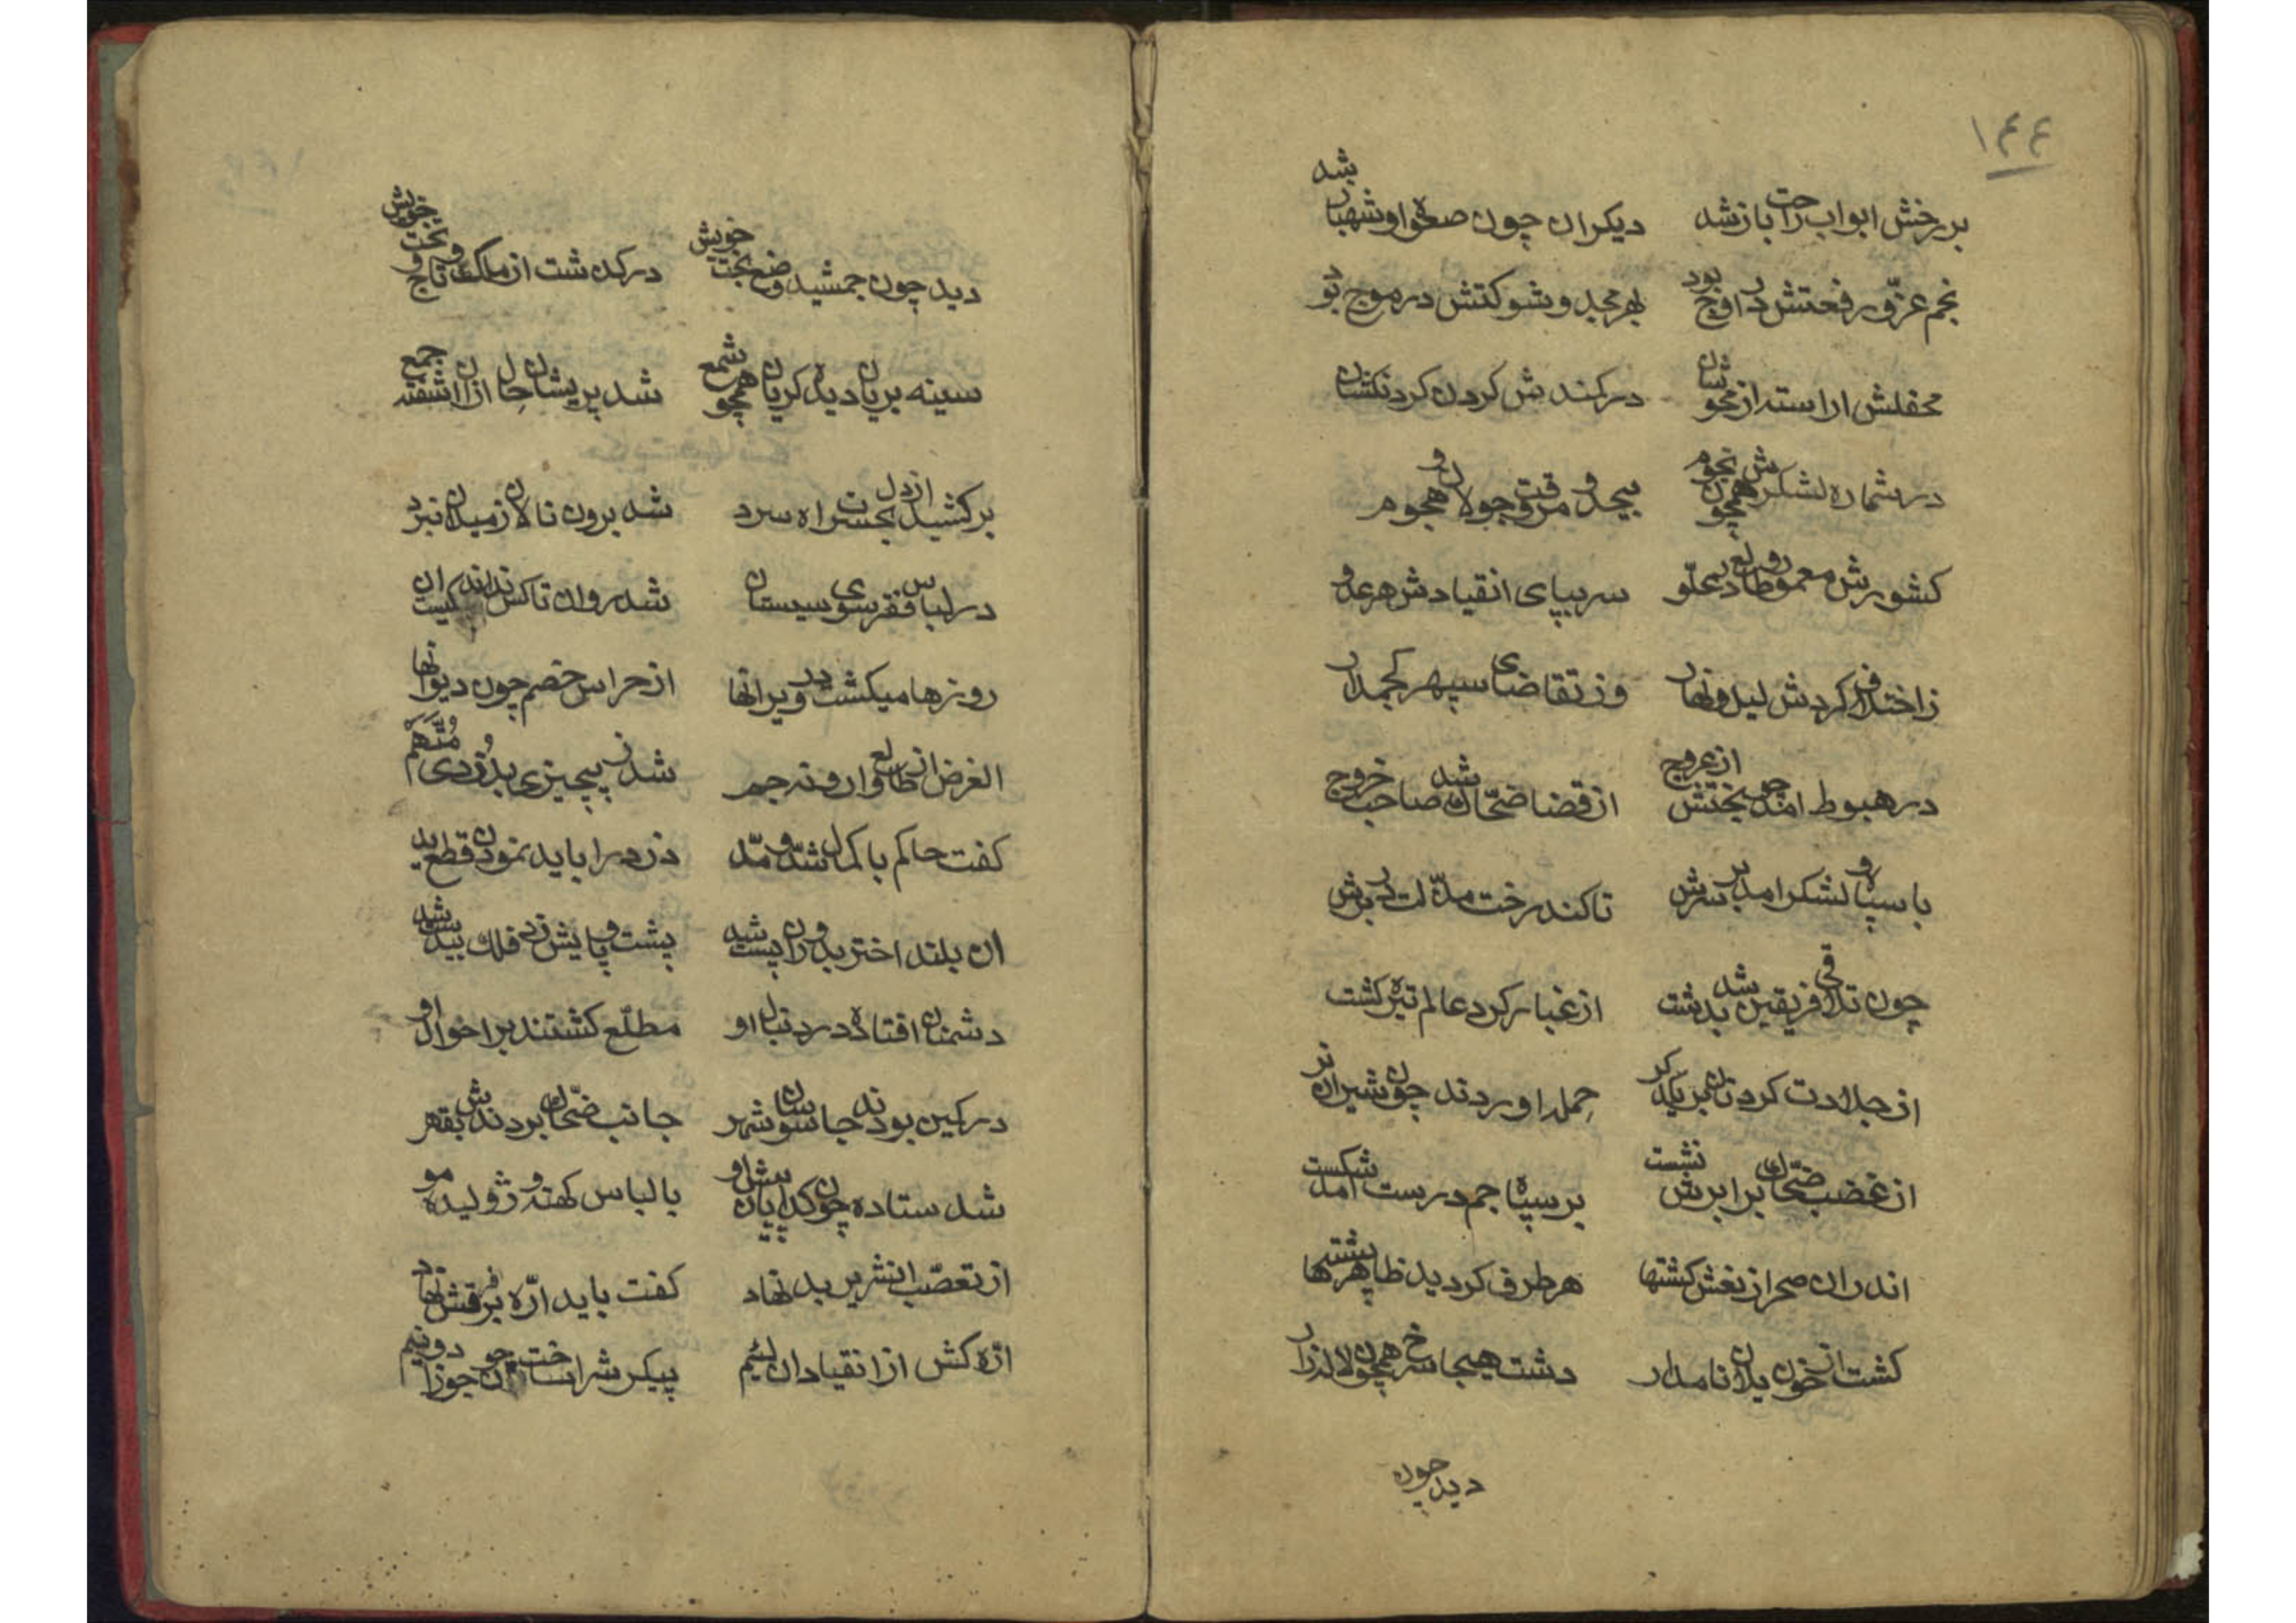 ١٤٤
بر رخش ابواب راحت باز شد دیکران چون صعوه او شهباز شد
نجم عزّ و رفعتش در اوج بود بهر مجد و شوکتش در موج بود
محفلش اراسته از مهوشان در کمندش کردن کردنکشان
در شماره لشکرش همچون نجوم بیحد و مر وقت جولان و هجوم
کشورش معمور و طالع در علّو سر بپای انقیادش هر عدو
ز اختلاف کردش لیل و نهار وز تقاضای سپهر کجمدار
در هبوط امد چو بختش از عروج از قضا ضحّاک شد صاحب خروج
با سپاه و لشکر امد بر سرش تا کند رخت مذّلت در برش
چون تلاقی فریقین شد بدشت از غبار کرد عالم تیره کشت
از جلادت کردنان بر یکدکر حمله اوردند چون شیران نر
از غضب ضحّاک بر ابرش نشست بر سپاه جم درست امد شکست
اندران صحرا ز نعش کشتها هر طرف کردید ظاهر پشتها
کشت از خون یلان نامدار دشت هیجا سرخ همچون لاله زار
دید چون
دید چون جمشید وضع بخت خویش درکذشت از ملک و تاج و تخت خویش
سینه بریان دیده کریان همچو شمع شد پریشان حال ازان اشفته جمع
بر کشید از دل بحسرت اه سرد شد برون نالان ز میدان نبرد
در لباس فقر سوی سیستان شد روان تا کس نداند کیست ان
روزها میکشت در ویرانها از حراس خصم چون دیوانها
الغرض از طالع وارونه جم شد ز بیچیزی بدُزدی مُتَّهَم
کفت حاکم با کمال شدّ و مدّ دزد را باید نمودن قطع ید
ان بلند اختر بدوران پست شد پشت و پایش زد فلک بیدست شد
دشمنان افتاده در دنبال او مطلّع کشتند بر احوال او
در کمین بودند جاسوسان شهر جانب ضحّاک بردندش بقهر
شد ستاده چون کدایان پیش او با لباس کهنه و ژولیده مو
از تعصّب ان شریر بد نهاد کفت باید ارّه بر فرقش نهاد
ارّه کش از انقیاد ان لئیم پیکرش را ساخت چون جوزا دو نیم